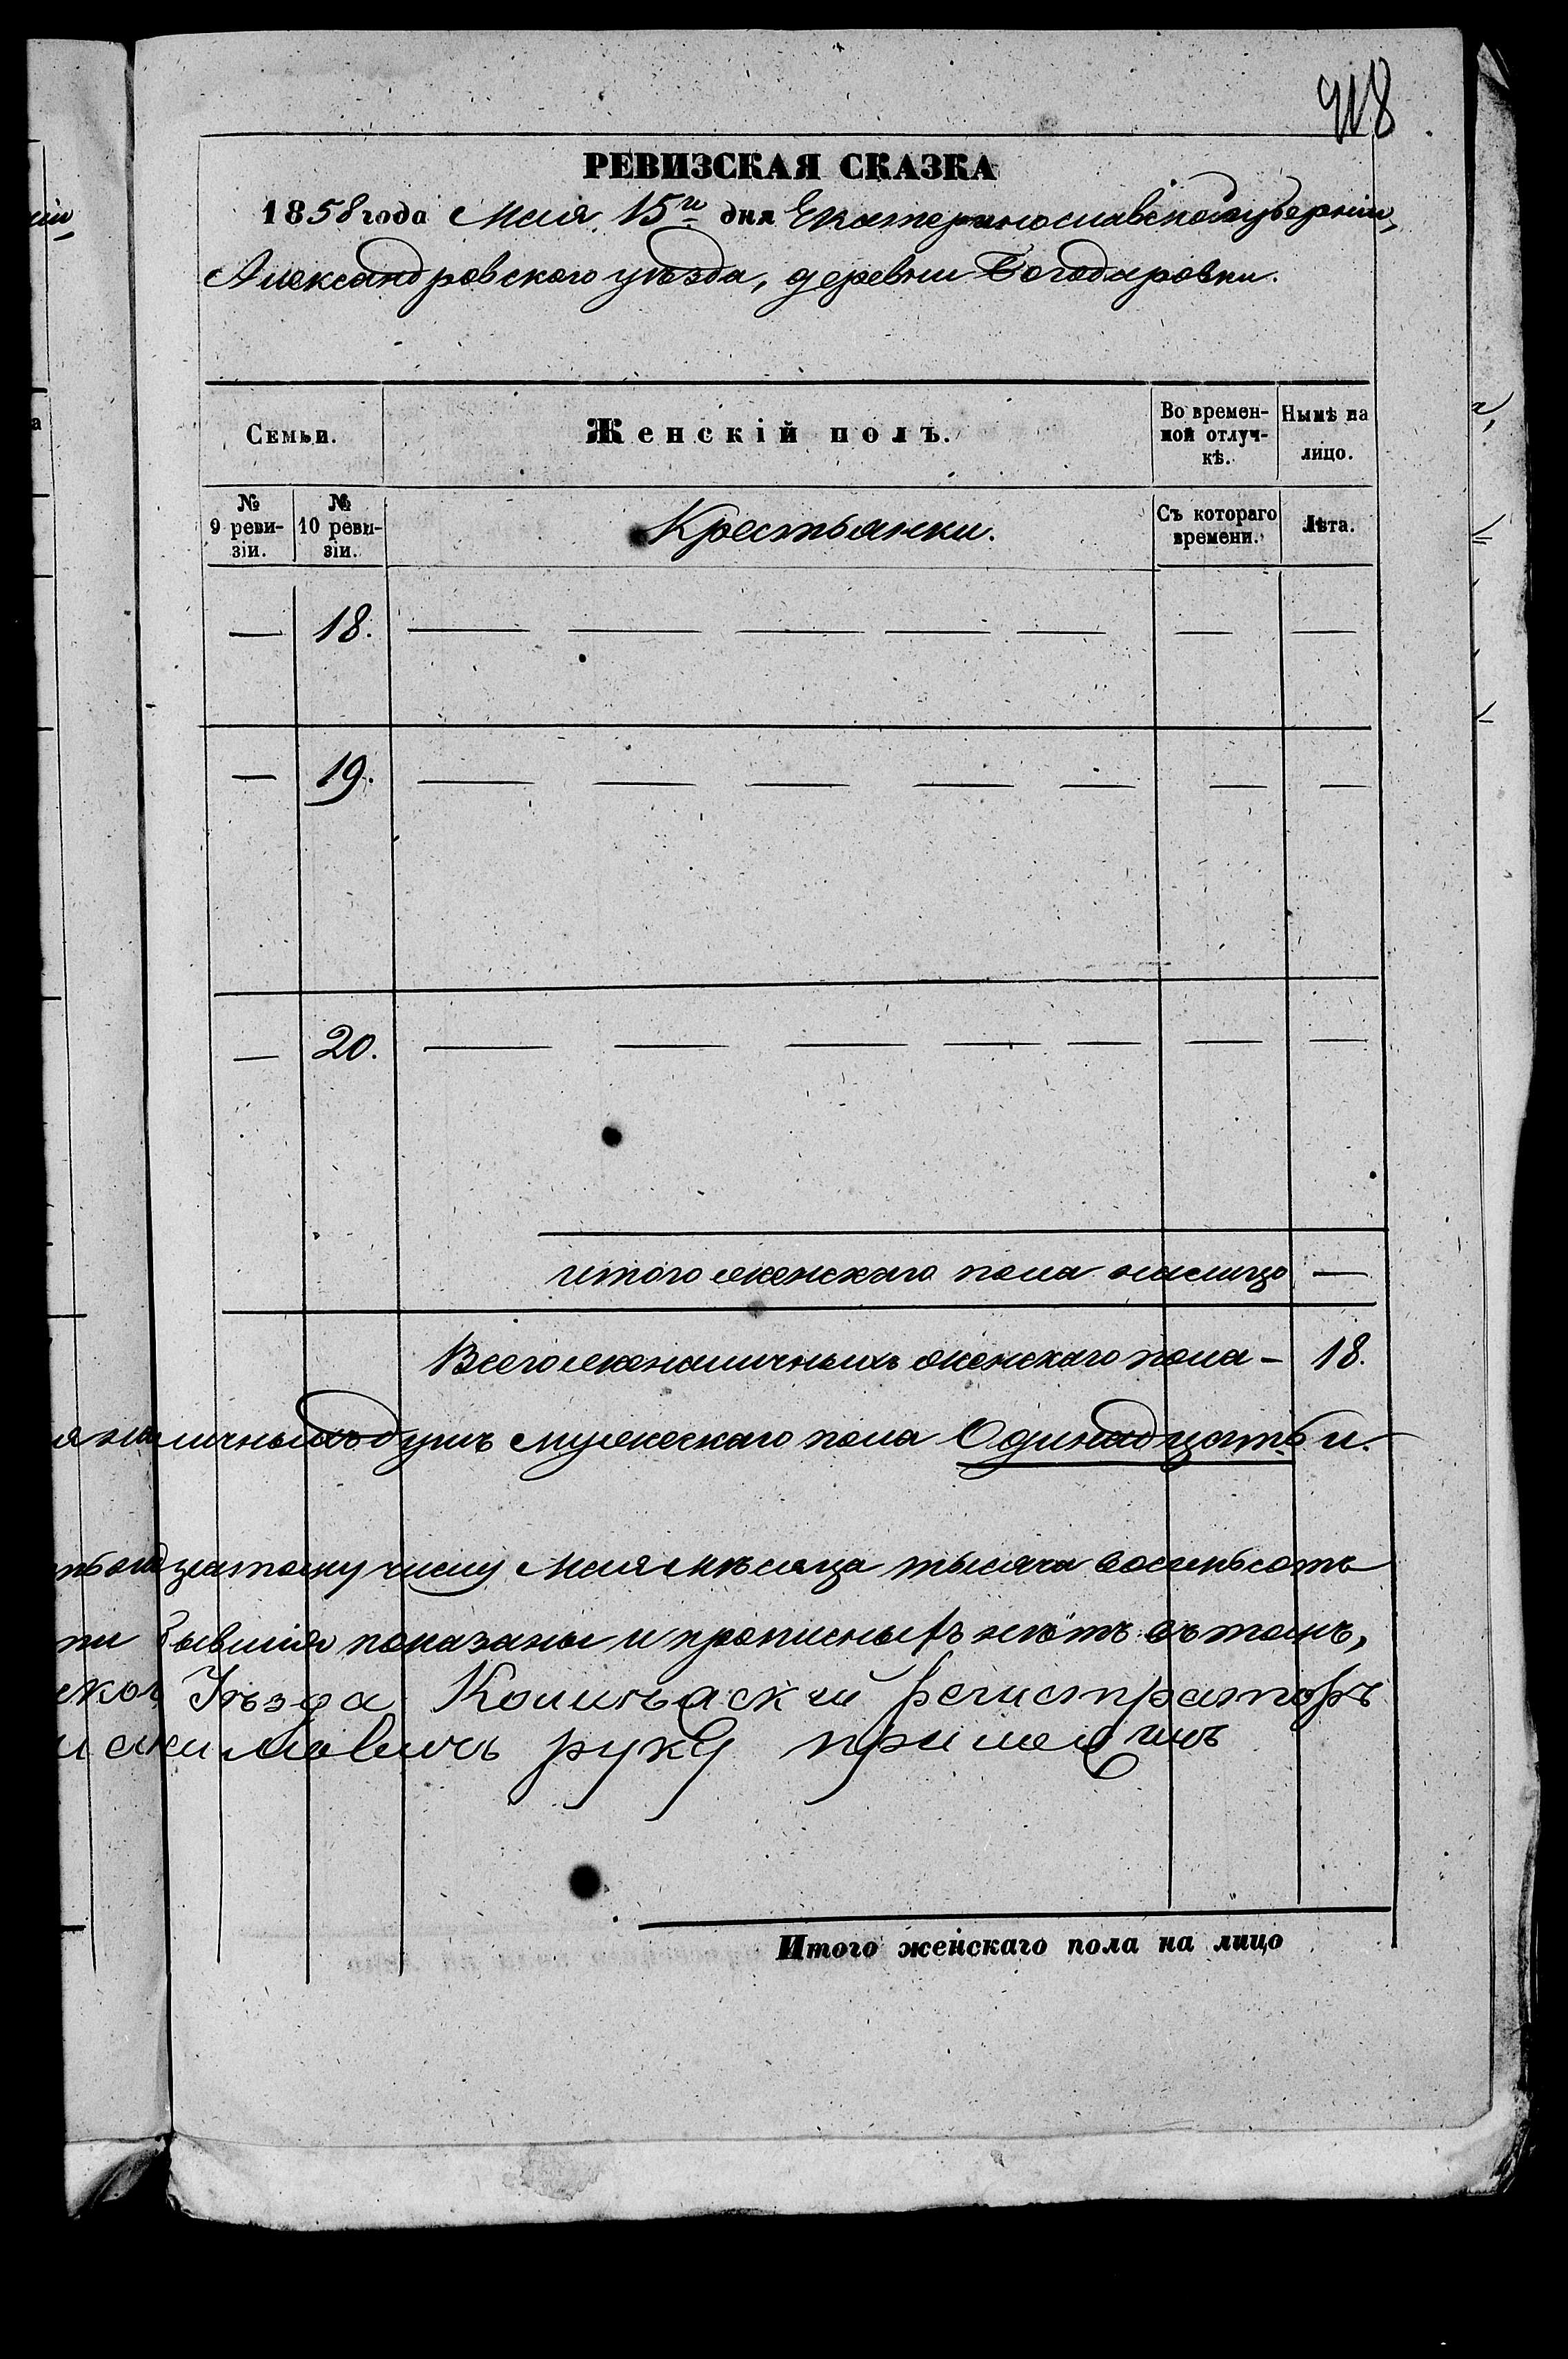 418
РЕВИЗСКАЯ СКАЗКА
1858 года Мая 15го дня Екатеринославской губернии,
Александровского уѣзда, деревни Богодаровки.
Семьи. Женскій полъ. Во временной отлучкѣ. Нынѣ на лицо.
№ 9 ревизіи. № 10 ревизіи. Крестьянки. Съ котораго времени. Лѣта.
— 18. — — — — — — —
— 19. — — — — — — —
— 20. — — — — — — —
итого женскаго пола налицо —
Всего женаличныхъ женскаго пола – 18.
наличныхъ душъ мужескаго пола Одинадцать и
дцатому числу Мая мѣсяца тысяча восемьсотъ
бывшія показаны и прописныхъ нѣтъ въ томъ,
Уѣзда Колижаский регистраторъ
руку приложилъ
Итого женскаго пола на лицо